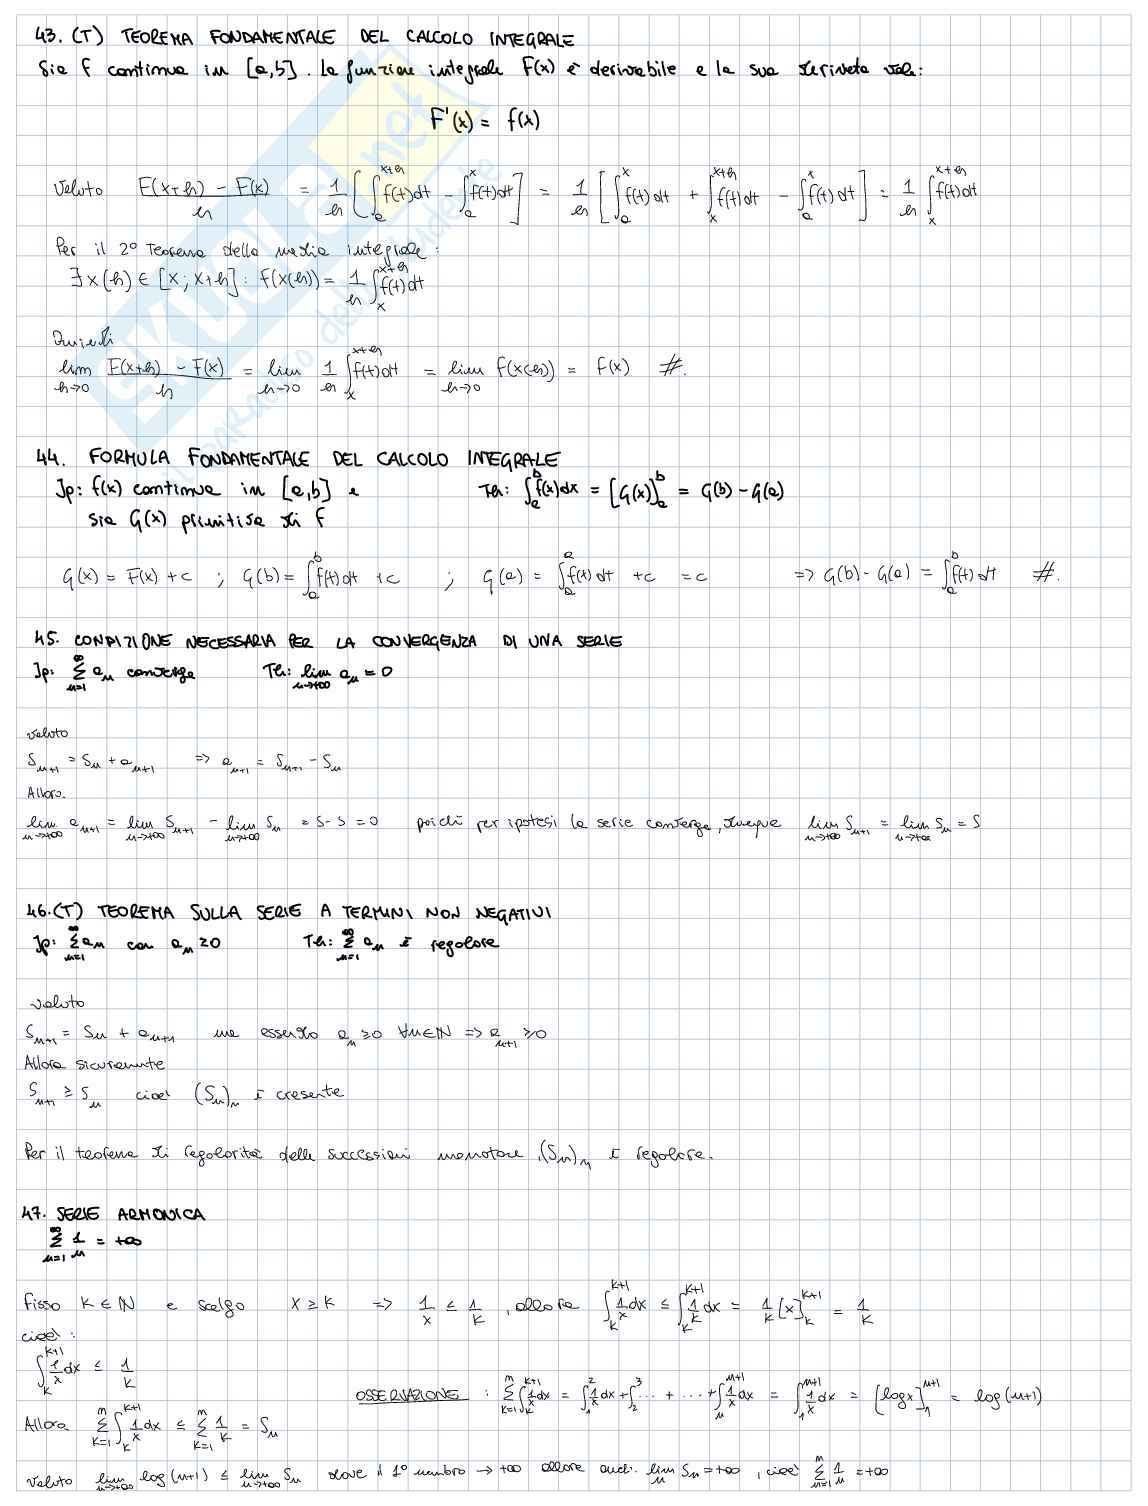 43. (T) TEOREMA FONDAMENTALE DEL CALCOLO INTEGRALE
Sia f continua in [a,b]. La funzione integrale F(x) è derivabile e la sua derivata vale:
F'(x) = f(x)
Valuto (F(x+h) - F(x))/h = 1/h [∫_a^{x+h} f(t)dt - ∫_a^x f(t)dt] = 1/h [∫_a^x f(t)dt + ∫_x^{x+h} f(t)dt - ∫_a^x f(t)dt] = 1/h ∫_x^{x+h} f(t)dt
Per il 2° Teorema della media integrale:
∃ x(h) ∈ [x; x+h] : f(x(h)) = 1/h ∫_x^{x+h} f(t)dt
Quindi
lim_{h→0} (F(x+h) - F(x))/h = lim_{h→0} 1/h ∫_x^{x+h} f(t)dt = lim_{h→0} f(x(h)) = f(x) #.
44. FORMULA FONDAMENTALE DEL CALCOLO INTEGRALE
Ip: f(x) continua in [a,b] e Th: ∫_a^b f(x)dx = [G(x)]_a^b = G(b) - G(a)
sia G(x) primitiva di f
G(x) = F(x) + c ; G(b) = ∫_a^b f(t)dt + c ; G(a) = ∫_a^a f(t)dt + c = c => G(b) - G(a) = ∫_a^b f(t)dt #.
45. CONDIZIONE NECESSARIA PER LA CONVERGENZA DI UNA SERIE
Ip: ∑_{n=1}^∞ a_n converge Th: lim_{n→+∞} a_n = 0
valuto
S_{n+1} = S_n + a_{n+1} => a_{n+1} = S_{n+1} - S_n
Allora.
lim_{n→+∞} a_{n+1} = lim_{n→+∞} S_{n+1} - lim_{n→+∞} S_n = S - S = 0 poiché per ipotesi la serie converge, dunque lim_{n→+∞} S_{n+1} = lim_{n→+∞} S_n = S
46. (T) TEOREMA SULLA SERIE A TERMINI NON NEGATIVI
Ip: ∑_{n=1}^∞ a_n con a_n ≥ 0 Th: ∑_{n=1}^∞ a_n è regolare
valuto
S_{n+1} = S_n + a_{n+1} ma essendo a_n ≥ 0 ∀n∈ℕ => a_{n+1} ≥ 0
Allora sicuramente
S_{n+1} ≥ S_n cioè (S_n)_n è cresente
Per il teorema di regolarità delle successioni monotone, (S_n)_n è regolare.
47. SERIE ARMONICA
∑_{n=1}^∞ 1/n = +∞
fisso k ∈ ℕ e scelgo x ≥ k => 1/x ≤ 1/k, allora ∫_k^{k+1} 1/x dx ≤ ∫_k^{k+1} 1/k dx = 1/k [x]_k^{k+1} = 1/k
cioè:
∫_k^{k+1} 1/x dx ≤ 1/k
OSSERVAZIONE : ∑_{k=1}^n ∫_k^{k+1} 1/x dx = ∫_1^2 1/x dx + ∫_2^3 ... + ... + ∫_n^{n+1} 1/x dx = ∫_1^{n+1} 1/x dx = [log x]_1^{n+1} = log(n+1)
Allora ∑_{k=1}^n ∫_k^{k+1} 1/x dx ≤ ∑_{k=1}^n 1/k = S_n
Valuto lim_{n→+∞} log(n+1) ≤ lim_{n→+∞} S_n dove il 1° membro → +∞ allora anch. lim S_n = +∞, cioè ∑_{n=1}^∞ 1/n = +∞